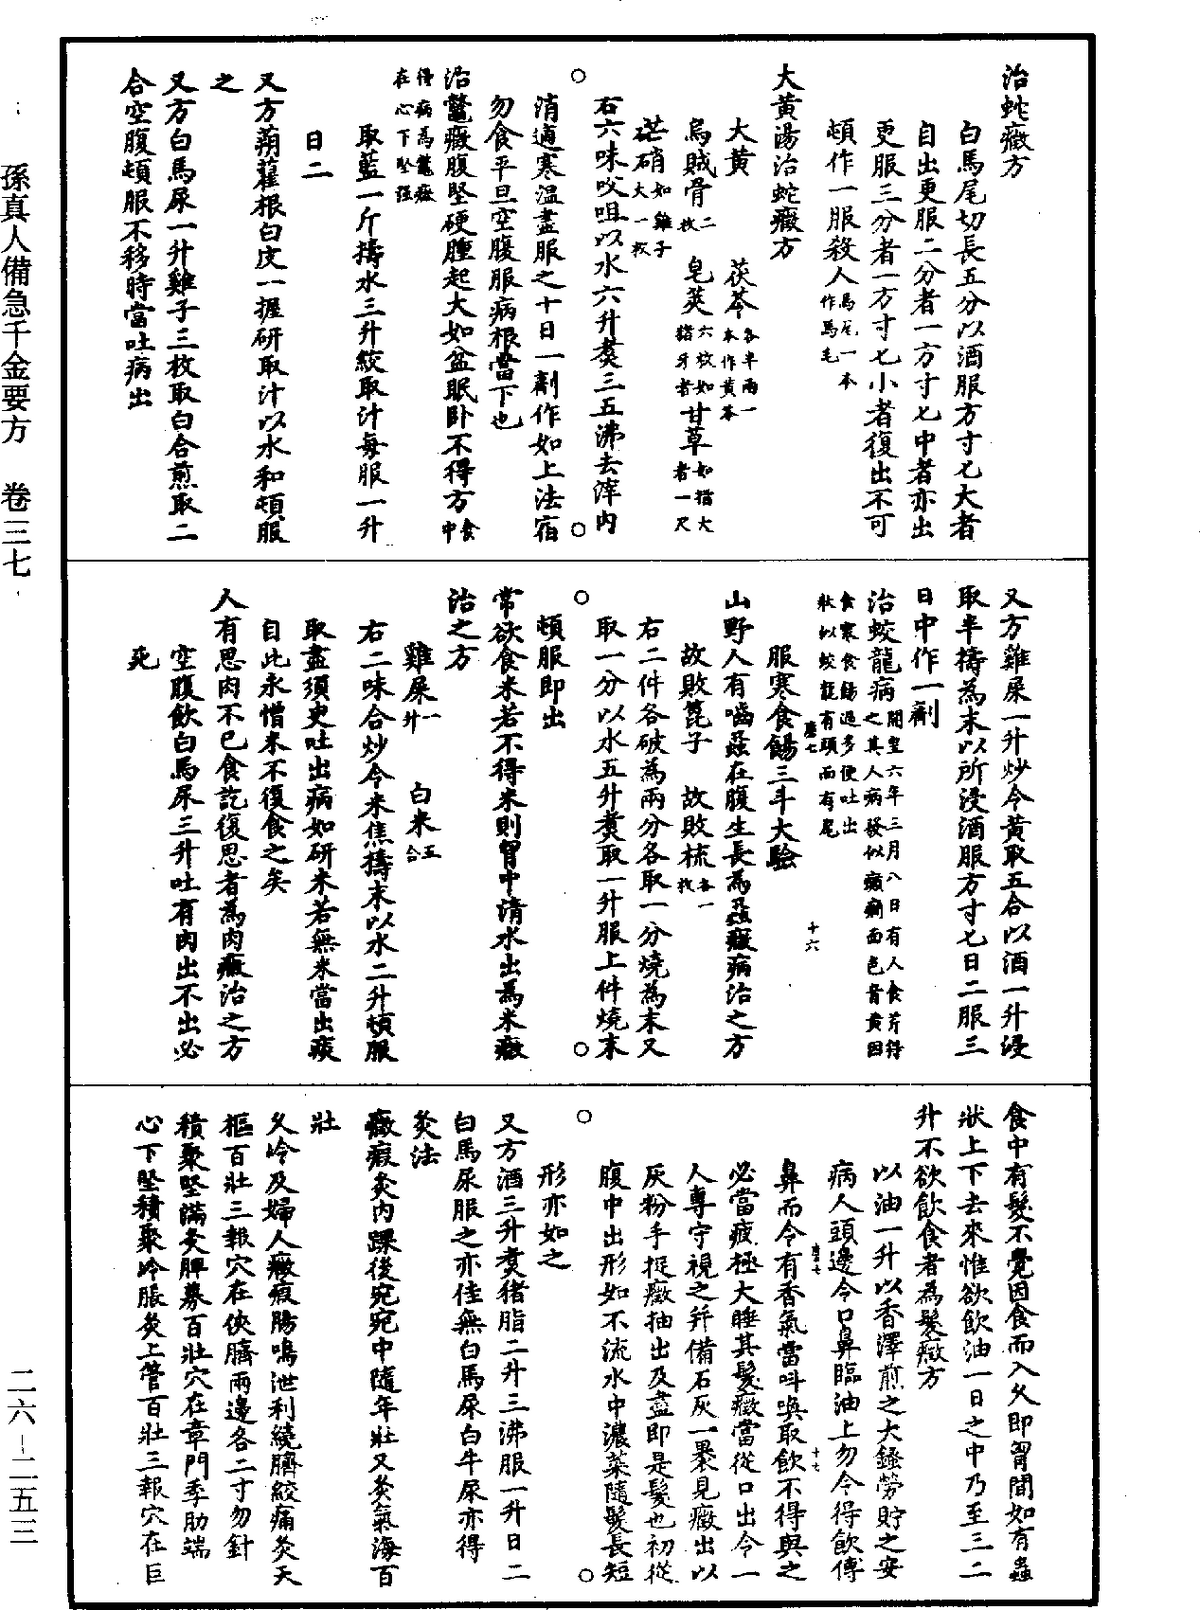 治蛇癥方
白馬尾切長五分以酒服方寸匕大者
自出更服二分者一方寸匕中者亦出
更服三分者一方寸匕小者復出不可
頓作一服殺人馬尾一本作馬毛
大黃湯治蛇癥方
大黃　茯苓各半兩一本作黃芩
烏賊骨二枚　皂莢六枚如猪牙者　甘草如指大者一尺
芒硝如雞子大一枚
右六味㕮咀以水六升煑三五沸去滓内
消適寒温盡服之十日一劑作如上法宿
勿食平旦空腹服病根當下也
治鼈癥腹堅硬腫起大如盆眠卧不得方食中
得病為鼈癥在心下堅强
取藍一斤擣水三升絞取汁每服一升
日二
又方蒴藋根白皮一握研取汁以水和頓服
之
又方白馬尿一升雞子三枚取白合煎取二
合空腹頓服不移時當吐病出
又方雞屎一升炒令黃取五合以酒一升浸
取半擣為末以所浸酒服方寸匕日二服三
日中作一劑
治蛟龍病開皇六年三月八日有人食芹得之其人病發似癲癎面色青黃因
食寒食餳過多便吐出狀似蛟龍有頭而有尾
服寒食餳三斗大驗
唐七　十六
山野人有嚙蝨在腹生長為蝨癥病治之方
故敗篦子　故敗梳各一枚
右二件各破為兩分各取一分燒為末又
取一分以水五升煑取一升服上件燒末
頓服即出
常欲食米若不得米則胷中清水出為米癥
治之方
雞屎一升　白米五合
右二味合炒令米焦擣末以水二升頓服
取盡須臾吐出病如研米若無米當出痰
自此永憎米不復食之矣
人有思肉不已食訖復思者為肉癥治之方
空腹飲白馬尿三升吐有肉出不出必
死
食中有髮不覺因食而入久即胷間如有蟲
狀上下去來惟欲飲油一日之中乃至三二
升不欲飲食者為髮癥方
以油一升以香澤煎之大𨬍𨮻貯之安
病人頭邊令口鼻臨油上勿令得飲傅
鼻面令有香氣當呌喚取飲不得與之
唐七　十七
必當疲極大睡其髮癥當從口出令一
人專守視之并備石灰一裹見癥出以
灰粉手捉癥抽出及盡即是髮也初從
腹中出形如不流水中濃菜隨髮長短
形亦如之
又方酒三升煑猪脂二升三沸服一升日二
白馬尿服之亦佳無白馬尿白牛尿亦得
灸法
癥瘕灸内踝後宛宛中隨年壯又灸氣海百
壯
久冷及婦人癥瘕腸鳴泄利繞臍絞痛灸天
樞百壯三報穴在俠臍兩邊各二寸勿針
積聚堅滿灸脾募百壯穴在章門季肋端
心下堅積聚冷脹灸上管百壯三報穴在巨
孫真人備急千金要方　卷三七
二六-二五三